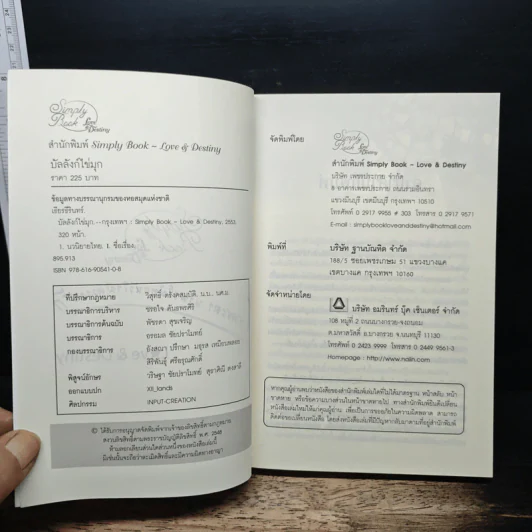 Simply Book
Love & Destiny
สำนักพิมพ์ Simply Book – Love & Destiny
บัลลังก์ไข่มุก
ราคา 225 บาท
ข้อมูลทางบรรณานุกรมของหอสมุดแห่งชาติ
เธียรธีรินทร์.
บัลลังก์ไข่มุก.--กรุงเทพฯ : Simply Book – Love & Destiny, 2553.
320 หน้า.
1. นวนิยายไทย. I. ชื่อเรื่อง.
895.913
ISBN 978-616-90541-0-8
ที่ปรึกษากฎหมาย
บรรณาธิการบริหาร
บรรณาธิการต้นฉบับ พัชรดา สุขเจริญ
บรรณาธิการ อรอมล ชัยปราโมทย์
กองบรรณาธิการ
พิสูจน์อักษร
ออกแบบปก XII_lands
ศิลปกรรม INPUT-CREATION
© ได้รับการอนุญาตจัดพิมพ์จากเจ้าของลิขสิทธิ์ตามกฎหมาย
สงวนลิขสิทธิ์ตามพระราชบัญญัติลิขสิทธิ์ พ.ศ. 2548
ห้ามลอกเลียนส่วนใดส่วนหนึ่งของหนังสือเล่มนี้
มิเช่นนั้นจะถือว่าละเมิดสิทธิ์และมีความผิดทางอาญา
จัดพิมพ์โดย
Simply Book
Love & Destiny
สำนักพิมพ์ Simply Book – Love & Destiny
บริษัท เพชรประกาย จำกัด
8 อาคารเพชรประกาย ถนนรามอินทรา
แขวงมีนบุรี เขตมีนบุรี กรุงเทพฯ 10510
โทรศัพท์ 0 2917 9955 # 303 โทรสาร 0 2917 9571
E-mail : simplybookloveanddestiny@hotmail.com
พิมพ์ที่ บริษัท ฐานบัณฑิต จำกัด
188/5 ซอยเพชรเกษม 51 แขวงบางแค
เขตบางแค กรุงเทพฯ 10160
จัดจำหน่ายโดย บริษัท อมรินทร์ บุ๊ค เซ็นเตอร์ จำกัด
108 หมู่ที่ 2 ถนนบางกรวย-จงถนอม
ต.มหาสวัสดิ์ อ.บางกรวย จ.นนทบุรี 11130
โทรศัพท์ 0 2423 9999 โทรสาร 0 2449 9561-2
Homepage : http://www.naiin.com
หากคุณผู้อ่านพบว่าหนังสือของสำนักพิมพ์เล่มใดที่ไม่ได้มาตรฐาน หน้าสลับ หน้า
ขาดหาย หรือข้อความบางส่วนในหน้าขาดหายไป ทางสำนักพิมพ์ยินดีเปลี่ยน
หนังสือเล่มใหม่ให้แก่คุณผู้อ่าน เพื่อเป็นการขออภัยในความผิดพลาด สามารถ
ติดต่อขอเปลี่ยนหนังสือ โดยส่งหนังสือเล่มที่มีปัญหากลับมาตามที่อยู่สำนักพิมพ์